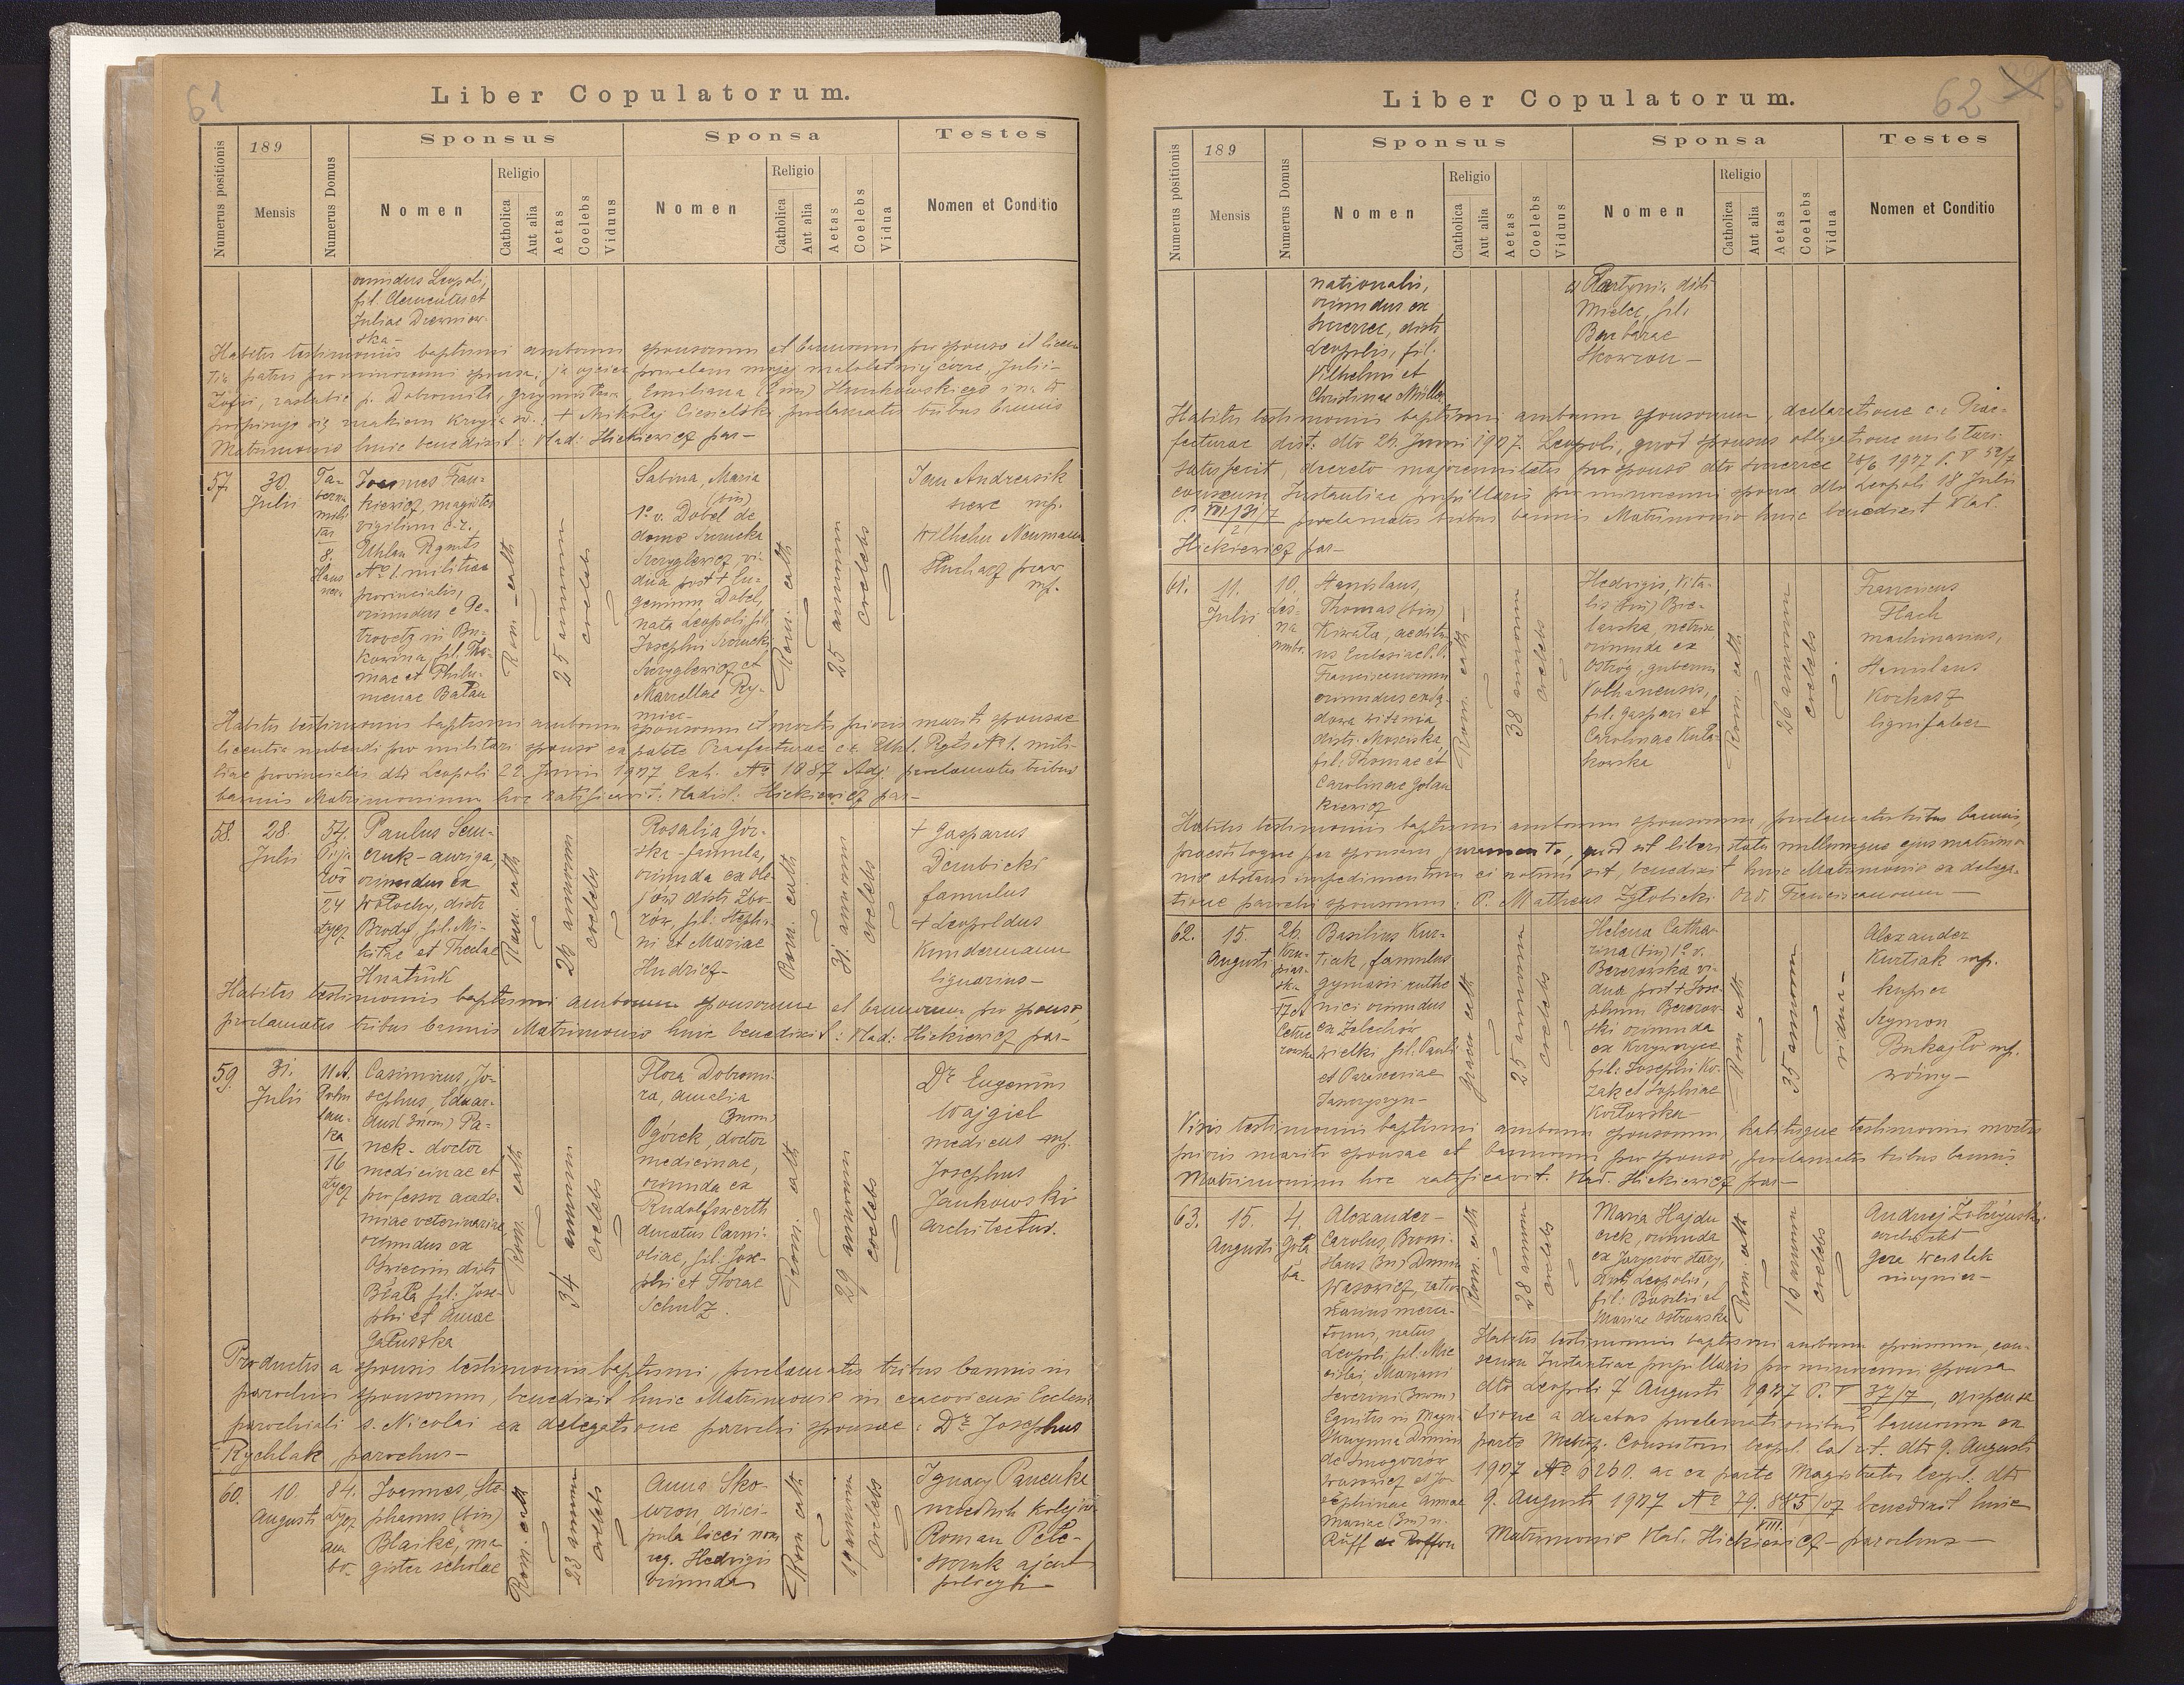 61
Liber Copulatorum.
Numerus positionis
189
Mensis
Numerus Domus
Sponsus
Nomen
Religio
Catholica
Aut alia
Aetas
Coelebs
Viduus
Sponsa
Nomen
Religio
Catholica
Aut alia
Aetas
Coelebs
Vidua
Testes
Nomen et Conditio
oriundus Leopoli,
fil. Clementis et
Juliae Drewniow-
ska -
Habitis testimoniis baptismi amborum sponsorum et bannorum pro sponso et licen
tia patris pro minorenni sponsa: ja ojciec pozwalam mojej małoletniej córce, Julii-
Zofii, zaślubić p. Dobromiła, Emiliana (bin)
podpisuję się znakiem krzyża św.: + Mikołaj Ciesielski, proclamatis tribus bannis
Matrimonio huic benedixit: Vlad: Hickiewicz par-
57.
30.
Julii
Ta-
berna
mili
tar
8.
Joannes Fran-
kiewicz, magister
vigilium c.r.
Uhlan Rgmts
No 1. militiae
provincialis,
oriundus e Pe-
trovetz in Bu-
kowina, fil. Tho-
mae et Philo-
menae Bałan
Rom. cath
25 annorum
coelebs
Sabina, Maria
(bin)
1o v. Dobel de
domo
vi-
dua post + Eu-
genium Dobel,
nata Leopoli, fil.
Josephi
et
Marcellae Ry-
mier-
Rom. cath
25 annorum
coelebs
Jan Andrejsik
mp.
Wilhelm Neumann
Słuchacz praw
mp.
Habitis testimoniis baptismi amborum sponsorum et mortis prioris mariti sponsae
licentia nubendi pro militari sponso ex parte Praefecturae c.r. Uhl. Rgts No 1. mili-
tiae provincialis dto Leopoli 22. Junii 1907 Exh. No 1087 Adj. proclamatis tribus
bannis Matrimonium hoc ratificavit: Vladisl: Hickiewicz par-
58.
28.
Julii
54.
24
Łycz
Paulus Sem-
czuk - auriga,
oriundus ex
Wołochy, distr
Brody fil. Mi-
kitae et Theclae
Hnatiuk
Rom. cath
26 annorum
coelebs
Rosalia Gór-
ska - famula,
oriunda ex Ole
jów distr. Zbo-
rów, fil. Stepha-
ni et Mariae
Hudricz-
Rom. cath
31. annorum
coelebs
+ Gasparus
Dembicki
famulus
+ Leopoldus
Kundermann
lignarius -
Habitis testimoniis baptismi amborum sponsorum et bannorum pro sponso,
proclamatis tribus bannis Matrimonio huic benedixit: Vlad: Hickiewicz par-
59.
31.
Julii
11 A.
Pohu
lan-
ka
16
Łycz
Casimirus, Jo-
sephus, Eduar-
dus (3nom) Pa-
nek - doctor
medicinae et
professor acade-
miae veterinariae
oriundus ex
Oświęcim distr
Biała fil: Jose-
phi et Annae
Gałuszka
Rom. cath
34 annorum
coelebs
Flora Dobromi-
ra, Amelia
3nom)
Ogórek, doctor
medicinae,
oriunda ex
Rudolfswerth
ducatus Carni-
oliae, fil. Jose-
phi et Florae
Schulz.
Rom. cath
29 annorum
coelebs
Dr Eugenius
Wajgiel
medicus mp.
Josephus
Jankowski
architectus.
Productis a sponsis testimoniis baptismi, proclamatis tribus bannis in
parochiis sponsorum, benedixit huic Matrimonio in cracoviensi Ecclesia
parochiali s. Nicolai ex delegatione parochi sponsae: Dr Josephus
Rychlak, parochus -
60.
10.
Augusti
84.
Łycz
Joannes, Ste
phanus (bin)
Blaike, ma-
gister scholae
Rom. cath
23 annorum
coelebs
Anna Sko-
wron disci-
pula licei nom
reg. Hedvigis
oriunda
Rom cath
19 annorum
coelebs
Ignacy Panenka
urzędnik kolejow
Roman Pete-
ajent
policyi -
62
Liber Copulatorum.
Numerus positionis
189
Mensis
Numerus Domus
Sponsus
Nomen
Religio
Catholica
Aut alia
Aetas
Coelebs
Viduus
Sponsa
Nomen
Religio
Catholica
Aut alia
Aetas
Coelebs
Vidua
Testes
Nomen et Conditio
nationalis,
oriundus ex
Szczerzec, distr
Leopolis, fil:
Vilhelmi et
Christinae Müller
ex distr
Mielec, fil.
Barbarae
Skowron -
Habitis testimoniis baptismi amborum sponsorum, declaratione c.r. Prae-
fecturae dist. dto 26. Junii 1907. Leopoli, quod sponsus obligatione militari
satisfecit, decreto majorennitatis pro sponso dto Szczerzec 28/6 1907
consensu Instantiae pupillaris pro minorenni sponsa dto Leopoli 18 Julii
proclamatis tribus bannis Matrimonio huic benedixit Vlad.
Hickiewicz par-
61.
11.
Julii
10.
Leś-
na
Stanislaus,
Thomas (bin)
Kiwała, aeditu
us Ecclesiae P.P.
Franciscanorum
oriundus ex Są-
dowa Wisznia,
distr. Mościska,
fil: Thomae et
Carolinae Golan
kiewicz
Rom. cath -
38 annorum
coelebs
Hedvigis, Vita-
lis (bin) Bie-
lawska, netrix
oriunda ex
Ostróg, gubernii
Volhinensis,
fil: Gaspari et
Carolinae Kula-
kowska
Rom. cath
26 annorum
coelebs
Franciscus
Flach
machinarius,
Stanislaus
Korkosz
lignifaber
Habitis testimoniis baptismi amborum sponsorum, proclamatis tribus bannis,
praestitoque per sponsam juramento, quod sit liberi status nullumque ejus matrimo
nio obstans impedimentum ei notum sit, benedixit huic Matrimonio ex delega-
tione parochi sponsorum: P. Matheus Ord. Franciscanorum -
62.
15.
Augusti
26.
Basilius Kur-
tiak, famulus
gymnasii ruthe
nici oriundus
ex Żelechów
wielki fil. Pauli
et Parasceviae
Graeco cath
25 annorum
coelebs
Helena Catha-
rina (bin) 1o v.
Berezowska vi-
dua post + Jose-
phum Berezow-
ski oriunda
ex Krzyworzec
fil: Josephi Ko-
zak et Sophiae
Kozłowska -
Rom cath
35 annorum
vidua -
Alexander
Kurtiak mp.
kupiec
Szymon
Bukajło mp.
woźny -
Visis testimoniis baptismi amborum sponsorum, habitisque testimonii mortis
prioris mariti sponsae et bannorum pro sponso, proclamatis tribus bannis
Matrimonium hoc ratificavit. Vlad. Hickiewicz par-
63.
15.
Augusti
4.
Gołą
ba-
Alexander -
Carolus, Broni-
slaus 3n) Dunin
Wąsowicz, ratio
narius merca-
torius, natus
Leopoli, fil. Mie
cislai, Mariani
Severini (3nom)
Equitis in Magna
Skrzynna Dunin
de Smogorzów
Wąsowicz et Jo-
sephinae Annae
Mariae (3n) n.
Rüff de Roffou
Rom. cath
28 annorum
coelebs
Maria Hajdu
czek, oriunda
ex Jaryczów stary,
distr. Leopolis,
fil: Basilii et
Mariae Ostrowska
Rom. cath
coelebs
Andrzej
architekt
Geza
inżynier -
Habitis testimoniis baptismi amborum sponsorum, con-
sensu Instantiae pupillaris pro minorenni sponsa
dto Leopoli 7 Augusti 1907 P. V 37/7, dispensa
tione a duabus proclamationibus bannorum ex
parte Metrop. Consistorii leopol. lat. rit. dto 9. Augusti
1907 No 5260. ac ex parte Magistratus leopol. dto
9. Augusti 1907 No 79.885/07 benedixit huic
VIII.
Matrimonio Vlad. Hickiewicz - parochus -